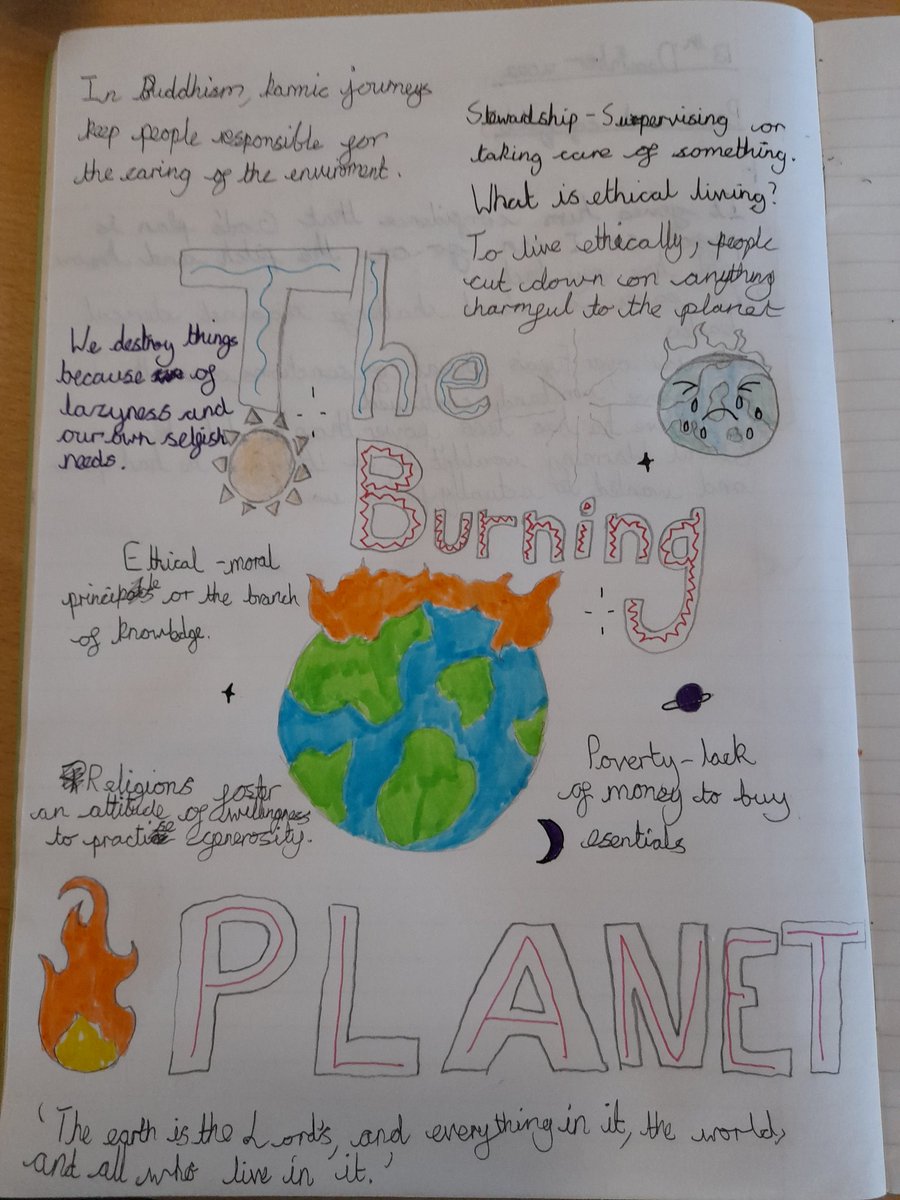 In Buddhism, kamic journeys
keep people responsible for
the caring of the enviroment.
Stewardship - Supervising or
taking care of something.
What is ethical living?
To live ethically, people
cut down on anything
charmful to the planet
The
We destroy things
because of
lazyness and
our own selfish
needs.
Burning
Ethical - moral
principle or the branch
of knowledge.
Religions foster
an attitude of willingness
to practise generosity.
Poverty - lack
of money to buy
esentials
PLANET
'The earth is the Lord's, and everything in it, the world,
and all who live in it.'